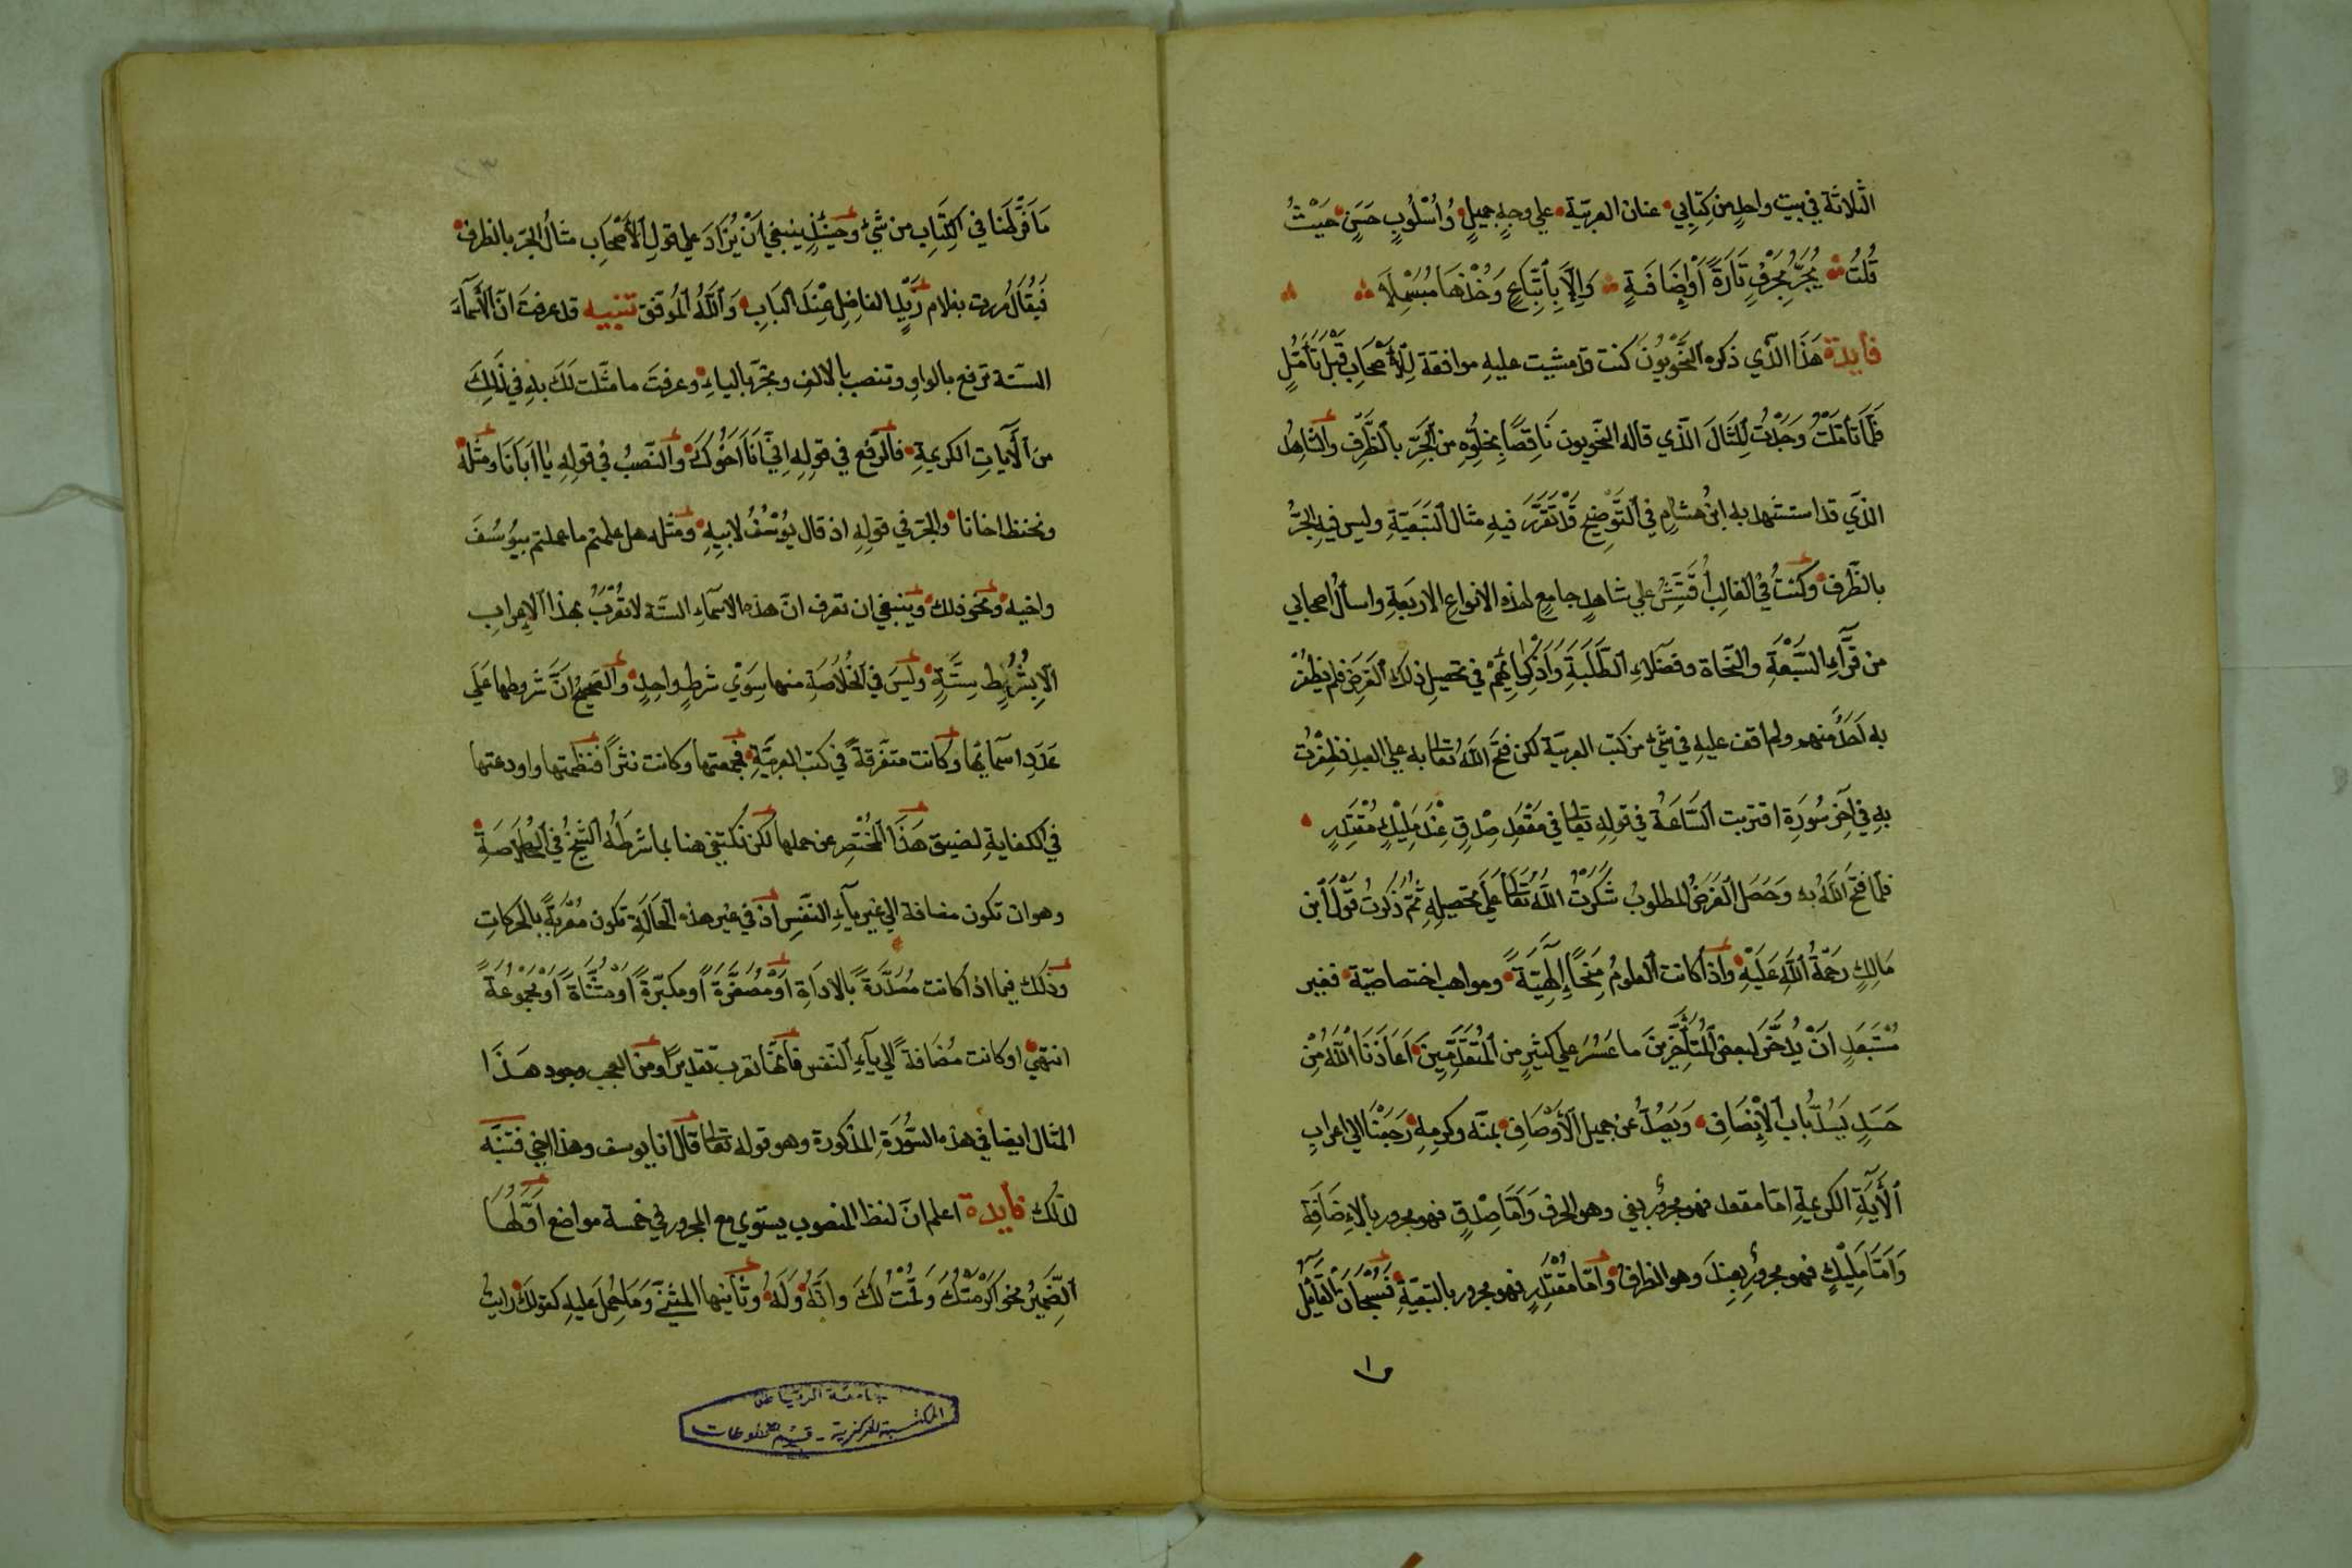 الثلاثة في بيت واحدٍ من كِتابي عنان العربيّة علي وجهٍ جميلٍ وأُسْلُوبٍ حَسَنٍ حَيْثُ
قُلتُ يُجَرُّ بِحَرْفٍ تَارَةً أَوْ إِضَافَةٍ وَإِلَّا بِاتِّبَاعٍ وَخُذْهَا مُبَسْمِلَا
فايدة هَذَا الذي ذكره النَّحْوِيُّونَ كنت قد مشيت عليهِ موافقة لِلأصْحَابِ قَبْلَ تَأَمُّلٍ
فَلَمَّا تَأَمَّلْتُ وَجَدْتُ المِثَالَ الذي قاله النحويون نَاقِصًا بِخلُوِّهِ من الجَرِّ بالظَّرْفِ والشاهِدُ
الذي قد استشهد به ابنُ هشامٍ في التَّوضِيحِ قَدْ تَقَرَّرَ فيهِ مثال التَّبَعِيّةِ وليس فيهِ الجرُّ
بالظَّرف وكنتُ في الغالِبِ أُفَتِّشُ علي شاهدٍ جامِعٍ لهذه الانواعِ الاربَعَةِ واسألُ اصحابي
من قرَّآءِ السَّبْعَةِ والنحاة وفضلاءِ الطَّلَبَةِ وَأَذْكِيَائِهِمْ في تحصِيلِ ذلكَ الغَرَضِ فلم يظفَرْ
به أحَدٌ منهم ولم اقف عليهِ في شيْءٍ من كتب العربيّة لكن فتَحَ اللهُ تعالى به علي العبد فظفِرْتُ
بهِ في آخرِ سُورَةِ اقتربت السَّاعَةُ في قولِهِ تعالى في مَقْعَدِ صِدْقٍ عِنْدَ مَلِيْكٍ مُقْتَدِرٍ
فلما فتحَ اللهُ به وَحَصَلَ الغَرَضُ المطلوبُ شَكَرْتُ اللهَ تَعَالَى عَلَي تحصيلِهِ ثُمَّ ذَكَرْتُ قَوْلَ ابنِ
مَالِكٍ رَحْمَةُ اللهِ عَلَيْهِ وَاذا كانت العلومُ مِنَحًا إِلهِيَّةً ومواهب اختصاصيّة فغير
مُسْتَبعَدٍ أَنْ يُدَّخَرَ لبعضِ المُتَأَخِّرِيْنَ ما عَسُرَ علي كثيرٍ من المُتَقَدِّمِيْنَ أعَاذَنَا اللهُ مِنْ
حَسَدٍ يَسُدُّ بَابَ الإنْصَافِ وَيَصُدُّ عن جميل الأوْصَافِ بمنّه وكرمِهِ رَجَعْنَا الي اعراب
الآيَةِ الكريمةِ امّا مقعد فهو مجرورٌ بفي وهو الحرف وَأمَّا صِدْقٍ فهو مجرور بالإضَافَةِ
وَأَمَّا مَلِيْكٍ فهو مجرورٌ بِعِنْدَ وهو الظرف وامّا مُقْتَدِرٍ فهو مجرور بالتبعيّةِ فَسُبْحَانَ القَائِلِ
ما
مَا فَرَّطْنَا في الكِتَابِ من شَيْءٍ وحِيْنَئِذٍ ينبغي أَنْ يُزَادَ علي قولِ الأصْحَابِ مثالُ الجرّ بالظرف
فَيُقَال مررت بغلام زَيْدٍ الفاضِلِ عِنْدَ البَابِ وَاللهُ المُوَفِّق تنبيه قد عرفتَ انّ الأسْمَآءَ
الستّة ترفع بالواوِ وتنصب بالالفِ وتجرّ بالياءِ وعرفتَ ما مثّلت لَكَ بهِ في ذَلِكَ
منَ الآيَاتِ الكريمةِ فالرفع في قولِهِ إنِّي أَنَا أَخُوْكَ والنّصبُ في قولِهِ يا أَبَانَا ومثله
ونحفظ اخانا والجرّ في قولِهِ اذ قال يُوسُفُ لابيهِ ومثله هل علمتم ما فعلتم بيُوسُفَ
واخيه ونحو ذلك وينبغي ان تعرف انّ هذه الاسماءِ الستّة لا تُعْرَبُ بهذا الإعرابِ
الّا بِشُرُوْطٍ سِتَّةٍ ولَيْسَ في الخُلَاصَةِ منها سِوَيْ شرطٍ واحِدٍ والصحيحُ انَّ شروطها عَلَي
عَدَدِ اسمآئها وكانت متفرّقةً في كتب العربيَّةِ فجمعتها وكانت نثرًا فنظمتها واودعتها
في الكفايةِ لضيق هَذَا المُخْتَصرِ عن حملها لكن نكتفي هنا بما شرَطَهُ الشّيخُ في الخُلاصَةِ
وهو ان تكون مضافة الي غير يآءِ النّفس اذ في غير هذه الحَالَةِ تكون مُعْرَبةً بالحركاتِ
وذلك فيما اذا كانت مُعَدَّةً بالاداةِ أوْ مُصَغَّرَةً أو مكبّرةً أوْ مثَنَّاةً أوْ مجموعَةً
انتهي او كانت مُضَافةً الي يآءِ النّفس فانّها تعرب تقديرًا ومن العجب وجود هَذَا
المثال ايضا في هذه السُّوْرَةِ المذكورة وهو قوله تعالى قال انا يوسف وهذا اخي فتنبّه
لذلك فايدة اعلم انّ لفظ المنصوب يستوي مع المجرور في خمسة مواضع أوَّلُهَا
الضَّمِيْرُ نحو أكْرَمْتُكَ وَقُمْتُ لَكَ وانَّهُ وَلَهُ وثانيها المثنّى وَمَا حُمِلَ عليهِ كقولكَ رايتُ
جامعة الرياض
المكتبة المركزية - قسم المخطوطات